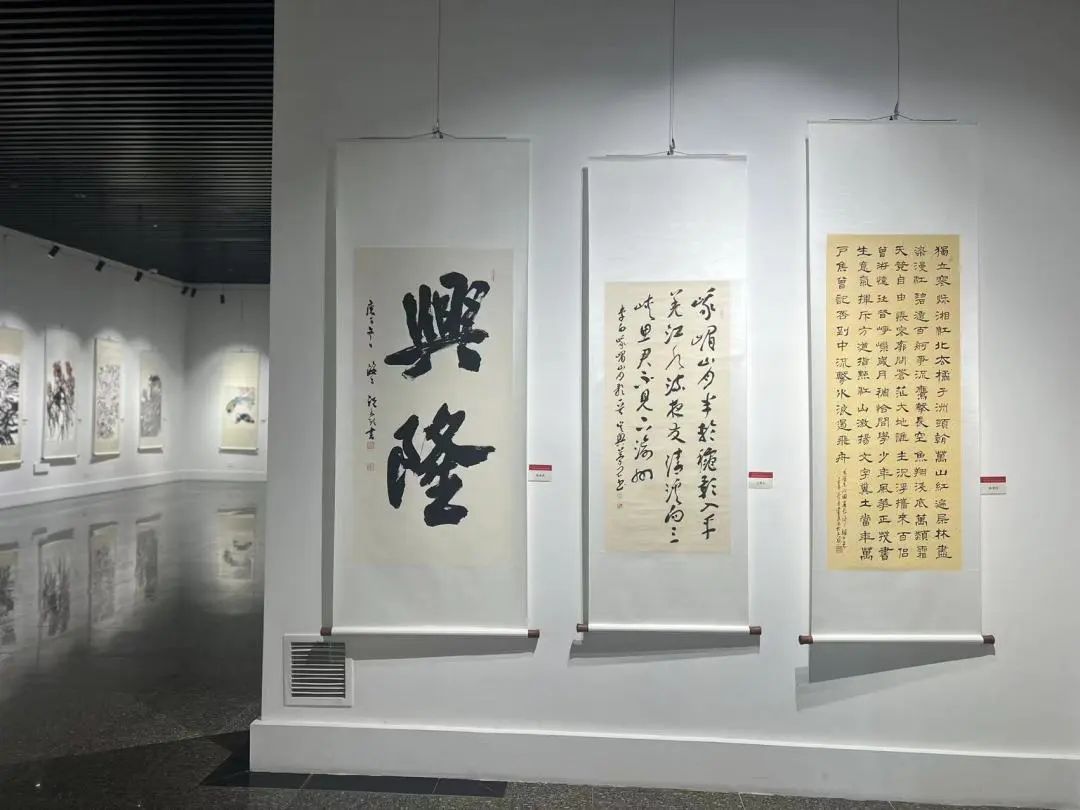 興隆
峨嵋山月半輪秋影入平
羌江水流夜发清溪向三
峡思君不见下渝州
李白峨嵋山月歌
獨立寒秋湘江北去橘子洲頭看萬山紅遍層林盡
染漫江碧透百舸爭流鷹擊長空魚翔淺底萬類霜
天競自由悵寥廓問蒼茫大地誰主沉浮攜來百侶
曾游憶往昔崢嶸歲月稠恰同學少年風華正茂書
生意氣揮斥方遒指點江山激揚文字糞土當年萬
戶侯曾記否到中流擊水浪遏飛舟